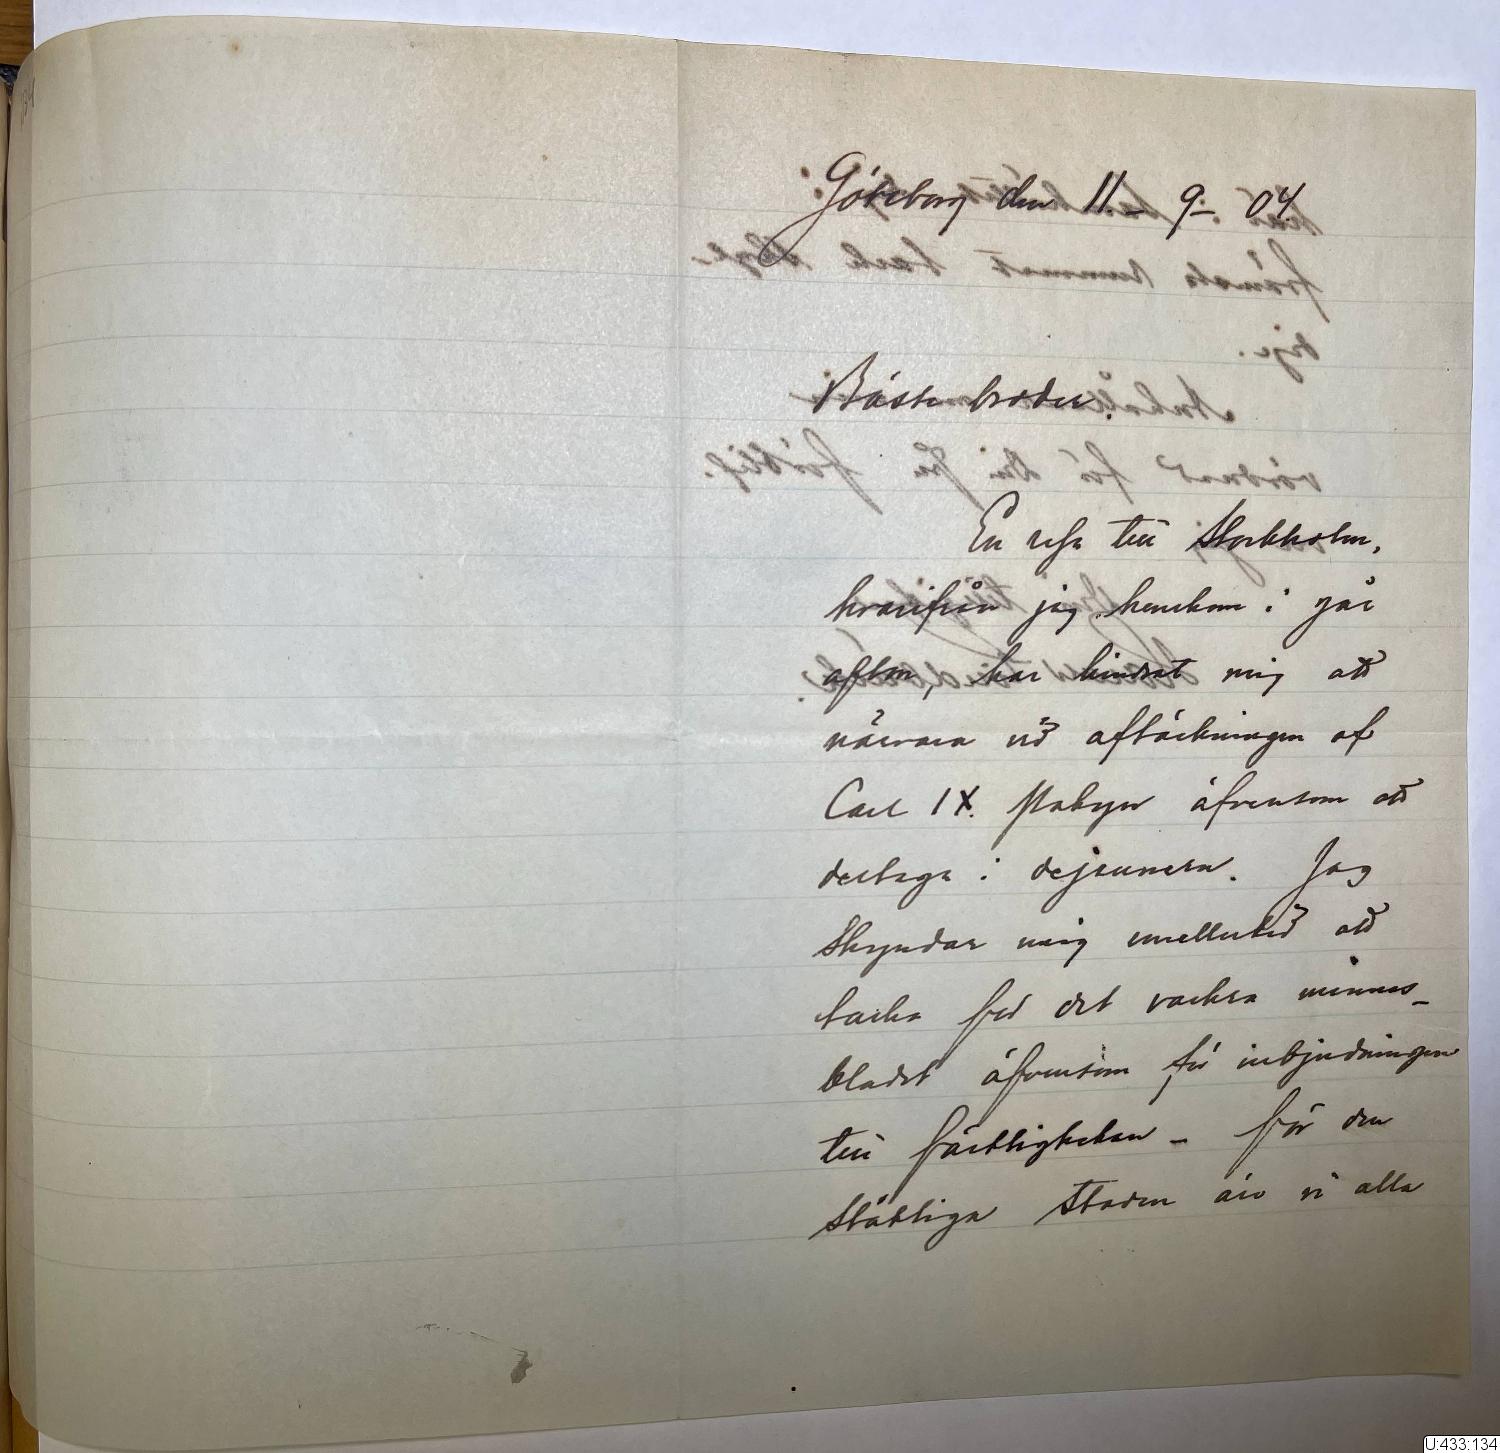 Göteborg den 11 - 9 - 04.
Bäste broder.
En resa till Stockholm,
hvarifrån jag hemkom i går
afton, har hindrat mig att
närvara vid aftäckningen af
Carl IX. statyn äfvensom att
deltaga i dejeunern. Jag
skyndar mig emellertid att
tacka för det vackra minnes-
bladet äfvensom för inbjudningen
till färdigheten - för den
ståtliga staden äro vi alla
U:433:134